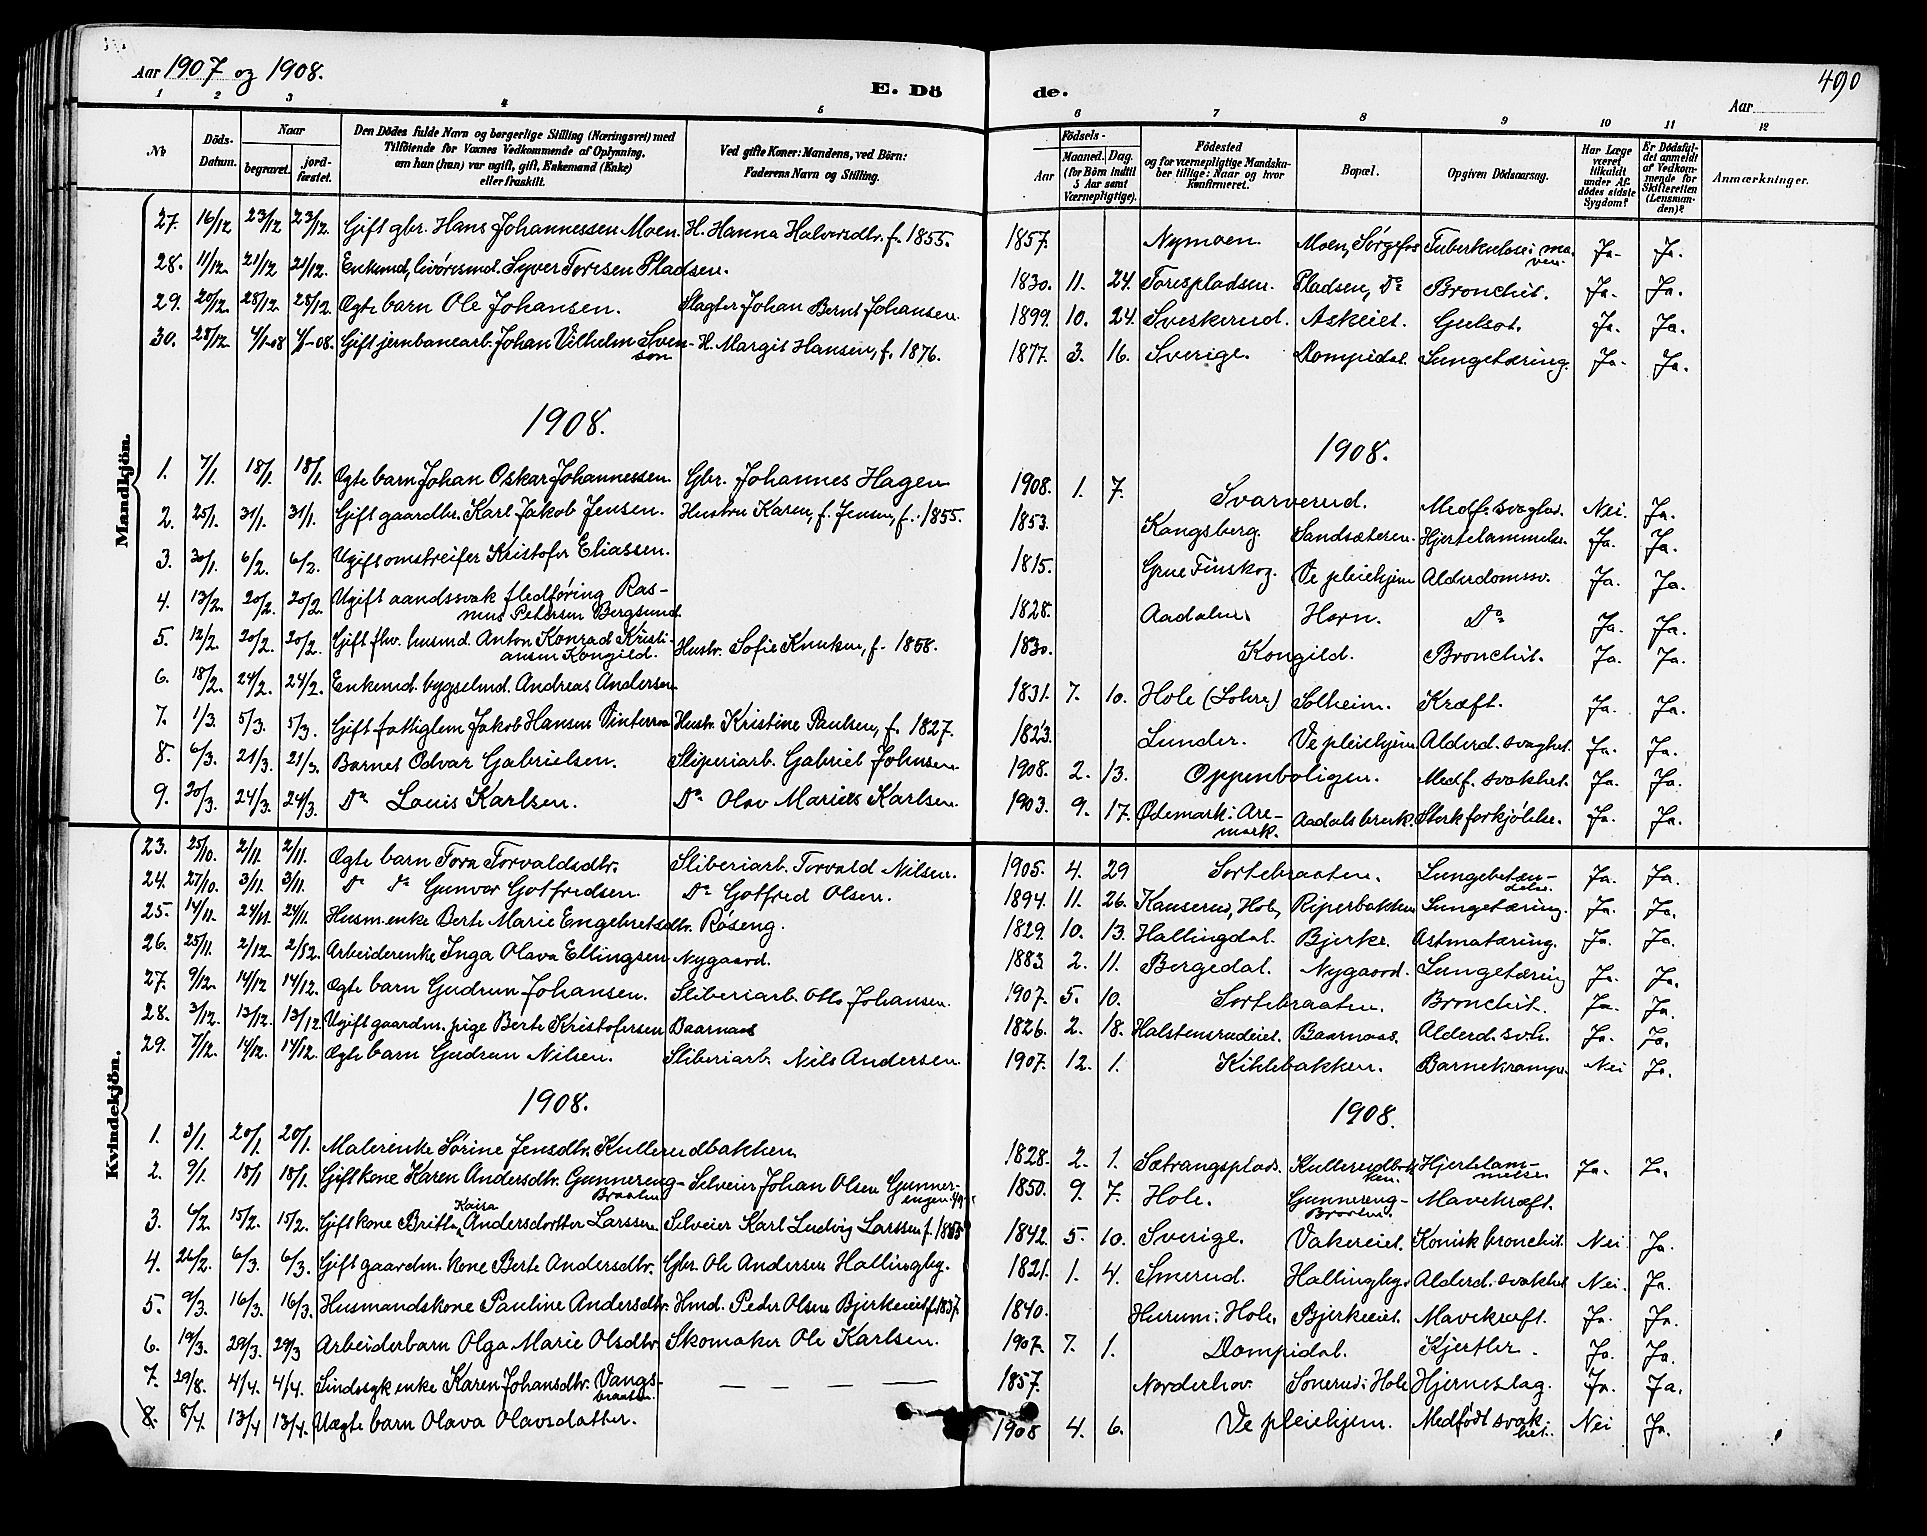 Aar 1907 og 1908.
E. Dö
de.
Aar
490
1 2 3 4 5 6 7 8 9 10 11 12
No
Döds-Datum.
Naar
begravet.
jord-fæstet.
Den Dödes fulde Navn og borgerlige Stilling (Næringsvei) med
Tilföiende for Voxnes Vedkommende af Oplysning,
om han (hun) var ugift, gift, Enkemand (Enke)
eller fraskilt.
Ved gifte Koner: Mandens, ved Börn:
Faderens Navn og Stilling.
Födsels-
Aar
Maaned. Dag.
(for Börn indtil 5 Aar samt Værnepligtige).
Födested
og for værnepligtige Mandska-
ber tillige: Naar og hvor
Konfirmeret.
Bopæl.
Opgiven Dödsaarsag.
Har Læge været tilkaldt under Af-dödes sidste Sygdom?
Er Dödsfal-det anmeldt af Vedkom-mende for Skifteretten (Lensman-den)?
Anmærkninger.
Mandkjön.
27. 16/12 23/12 23/12. Gift gbr. Hans Johannessen Moen. H. Hanna Halvorsdtr. f. 1855. 1857. Nymoen. Moen, Sørgefos Tuberkulose i ma-ven. Ja. Ja.
28. 11/12. 21/12 21/12. Enkemd, livöresmd. Syver Toresen Pladsen. 1830. 11. 24. Torespladsen. Pladsen, Do Bronchit. Ja. Ja.
29. 20/12. 28/12. 28/12. Ægte barn Ole Johansen. Slagter Johan Bernt Johansen. 1899. 10. 24. Sveskerud. Askeiet. Gulsot. Ja. Ja.
30. 28/12 4/1-08 4/1-08. Gift jernbanearb. Johan Vilhelm Sven-son H. Margit Hansen, f. 1876. 1877. 3. 16. Sverige. Dompidal. Lungetæring. Ja. Ja.
1908.
1908.
1. 7/1. 18/1 18/1. Ægte barn Johan Oskar Johannessen. Gbr. Johannes Hagen 1908. 1. 7. Svarverud. Medf. svaghet. Nei. Ja.
2. 25/1. 31/1. 31/1. Gift gaardbr. Karl Jakob Jensen. Hustru Karen, f. Jensen, f. 1855. 1853. Kongsberg. Sandsæteren. Hjertelammelse. Ja. Ja.
3. 30/1. 6/2. 6/2. Ugift omstreifer Kristofer Eliassen. 1815. Grue Finskog. Ve pleiehjem Alderdomssv. Ja. Ja.
4. 13/2. 20/2. 20/2. Ugift aandssvak fledføring Ras-
mus Petersen Bergsund. 1828. Aadalen. Horn. Do Ja. Ja.
5. 12/2. 20/2. 20/2. Gift fhv. husmd. Anton Konrad Kristi-
ansen Kongild. Hustr. Sofie Knutsen, f. 1858. 1830. Kongild. Bronchit. Ja. Ja.
6. 18/2. 24/2. 24/2. Enkemd. bygselmd. Andreas Andersen 1831. 7. 10. Hole (Lohre) Solheim. Kræft. Ja. Ja.
7. 1/3. 5/3. 5/3. Gift fattiglem Jakob Hansen Hustr. Kristine Paulsen, f. 1827. 1823. Lunder. Ve pleiehjem Alderd. svaghet. Ja. Ja.
8. 6/3. 21/3. 21/3. Barnet Odvar Gabrielsen. Sliperiarb. Gabriel Johnsen 1908. 2. 13. Oppenboligen. Medf. svakhet. Ja. Ja.
9. 20/3. 24/3. 24/3. Do Louis Karlsen. Do Olav Marius Karlsen. 1903. 9. 17. Ødemark i Are-mark. Aadalsbruk. Sterk forkjölelse. Ja. Ja.
Kvindekjön.
23. 25/10. 2/11. 2/11. Ægte barn Tora Torvaldsdtr. Sliberiarb. Torvald Nilsen. 1905. 4. 29 Sortebraaten. Lungebetæn-delse. Ja. Ja.
24. 27/10. 3/11. 3/11. Do Do Gunvor Gotfredsen. Do Gotfred Olsen. 1894. 11. 26. Hole, Riperbakken Lungetæring. Ja. Ja.
25. 14/11. 24/11. 24/11. Husm.enke Berte Marie Engebretsdtr. Røseng. 1829. 10. 13. Hallingdal. Bjerke. Astmatæring. Ja. Ja.
26. 25/11. 2/12. 2/12. Arbeiderenke Inga Olava Ellingsen Nygaard. 1883. 2. 11. Bergedal. Nygaard. Lungetæring Ja. Ja.
27. 9/12. 14/12 14/12. Ægte barn Gudrun Johansen. Sliberiarb. Otto Johansen. 1907. 5. 10. Sortebraaten. Bronchit. Ja. Ja.
28. 3/12. 13/12. 13/12 Ugift gaardm. pige Berte Kristofersen Baarnaas 1826. 2. 18. Halstensrudeiet. Baarnaas. Alderd. sv.h. Ja. Ja.
29. 7/12. 14/12. 14/12. Ægte barn Gudrun Nilsen. Sliberiarb. Nils Andersen. 1907. 12. 1. Kihlebakken. Barnekrampe. Nei Ja.
1908.
1908.
1. 3/1. 20/1 20/1. Malerenke Sørine Jensdtr. Kullerudbakken 1828. 2. 1. Sætrangsplads. Kullerudbak-ken. Hjertelam-melse Ja. Ja.
2. 9/1. 18/1 18/1. Gift kone Karen Andersdtr. Gunnereng-
Braaten Selveier Johan Olsen Gunner-
engen. 1850. 9. 7. Hole. Gunnereng-Braaten. Mavekræft.
3. 6/2. 15/2. 15/2. Gift kone Britta Kaisa Andersdotter Larssen. Selveier Karl Ludvig Larssen f. 1842. 5. 10. Sverige. Vakereiet. Kronisk bronchit. Nei Ja.
4. 26/2. 6/3. 6/3. Gift gaardm. kone Berte Andersdtr. Gbr. Ole Andersen Hallingby. 1821. 1. 4. Smerud. Hallingby. Alderd. svakhet Nei. Ja.
5. 9/3. 16/3. 16/3. Husmandskone Pauline Andersdtr. Hmd. Peder Olsen Bjerkeeiet f. 1837. 1840. Hurum i Hole. Bjerkeeiet. Mavekræft. Ja. Ja.
6. 19/3. 29/3. 29/3 Arbeiderbarn Olga Marie Olsdtr. Skomaker Ole Karlsen. 1907. 7. 1. Dompidal. Kjertler. Ja. Ja.
7. 29/8. 4/4. 4/4. Sindssyk enke Karen Johansdtr. Vangs-
braaten. — — — — 1857. Norderhov. Sonerud i Hole Hjerneslag. Ja. Ja.
8. 8/4. 13/4 13/4. Uægte barn Olava Olavsdatter. 1908 4. 6. Ve pleiehjem. Medfödt svak-het. Nei Ja.